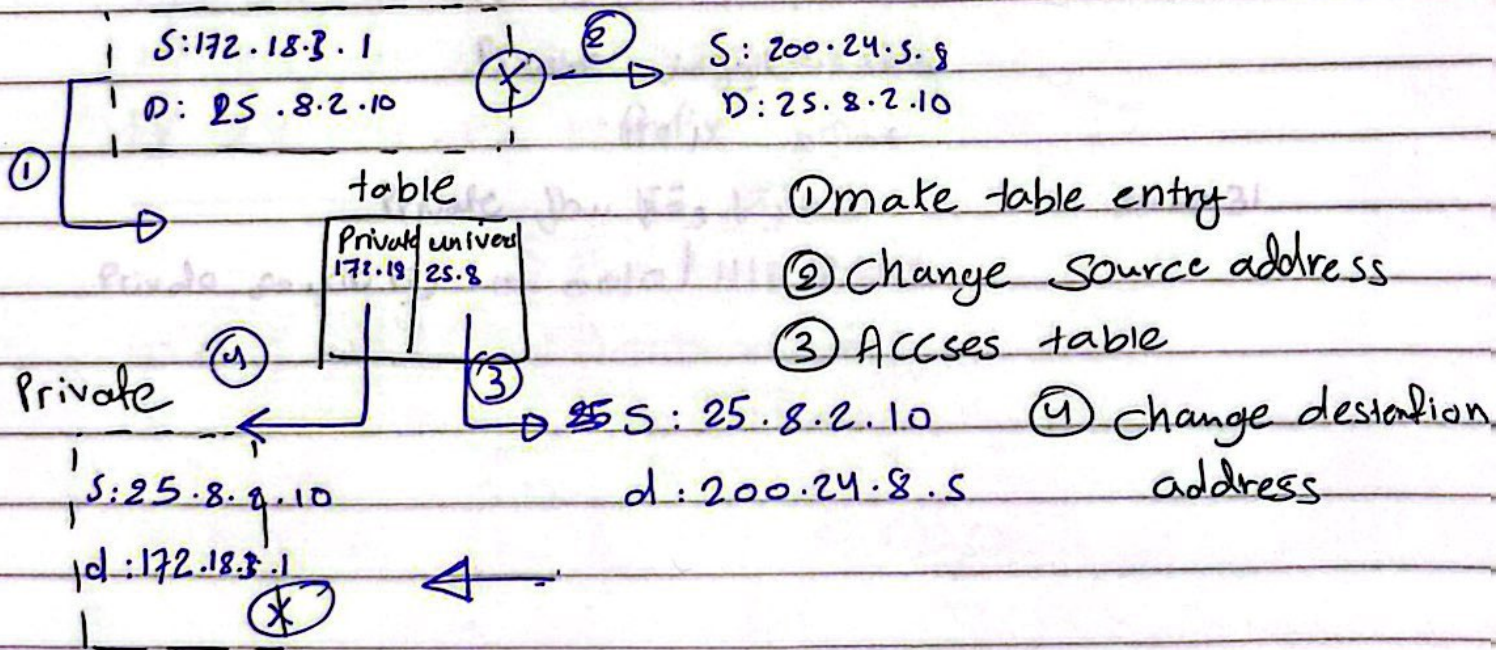 S:172.18.3.1
D: 25.8.2.10
②
S: 200.24.5.8
D: 25.8.2.10
①
table
Private univers
172.18 25.8
① make table entry
② Change source address
③ Accses table
④ change destention
address
④
③
Private
S: 25.8.2.10
d: 200.24.8.5
S:25.8.2.10
d:172.18.3.1